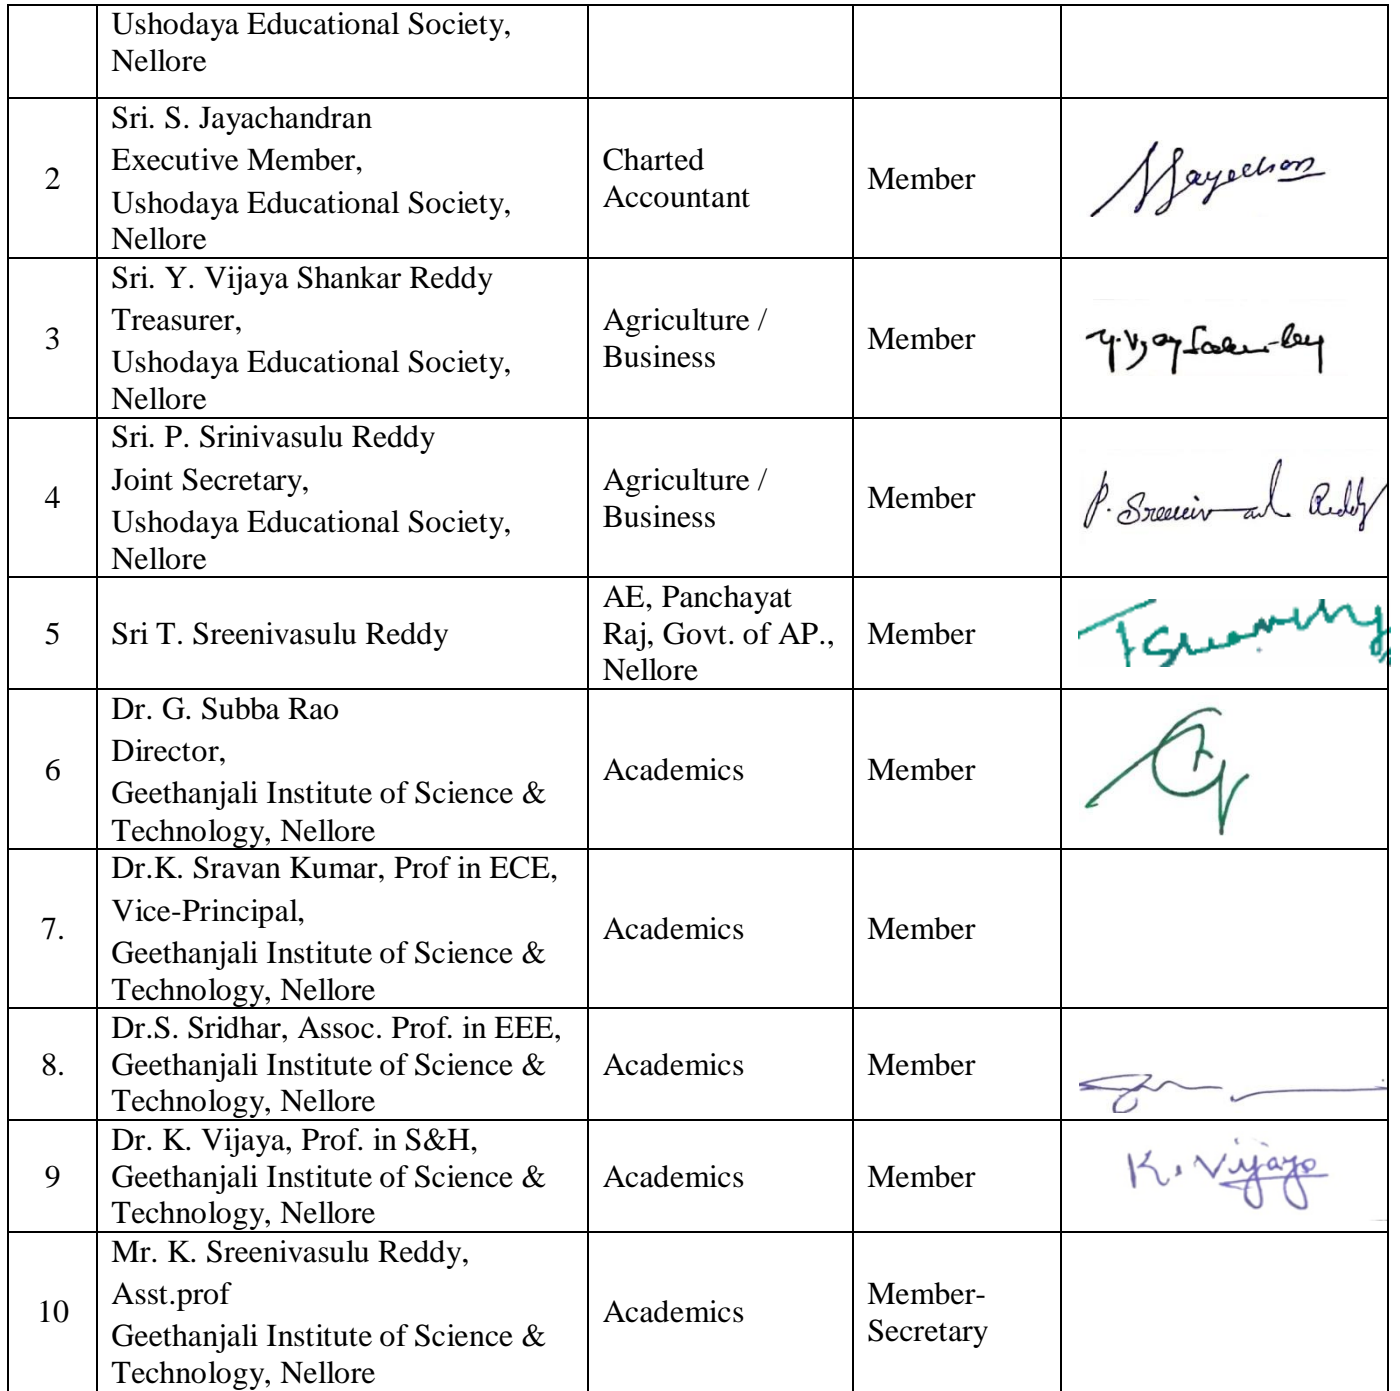 Ushodaya Educational Society,
Nellore
2
Sri. S. Jayachandran
Executive Member,
Ushodaya Educational Society,
Nellore
Charted
Accountant
Member
3
Sri. Y. Vijaya Shankar Reddy
Treasurer,
Ushodaya Educational Society,
Nellore
Agriculture /
Business
Member
4
Sri. P. Srinivasulu Reddy
Joint Secretary,
Ushodaya Educational Society,
Nellore
Agriculture /
Business
Member
5
Sri T. Sreenivasulu Reddy
AE, Panchayat
Raj, Govt. of AP.,
Nellore
Member
6
Dr. G. Subba Rao
Director,
Geethanjali Institute of Science &
Technology, Nellore
Academics
Member
7.
Dr.K. Sravan Kumar, Prof in ECE,
Vice-Principal,
Geethanjali Institute of Science &
Technology, Nellore
Academics
Member
8.
Dr.S. Sridhar, Assoc. Prof. in EEE,
Geethanjali Institute of Science &
Technology, Nellore
Academics
Member
9
Dr. K. Vijaya, Prof. in S&H,
Geethanjali Institute of Science &
Technology, Nellore
Academics
Member
K. Vijaya
10
Mr. K. Sreenivasulu Reddy,
Asst.prof
Geethanjali Institute of Science &
Technology, Nellore
Academics
Member-
Secretary